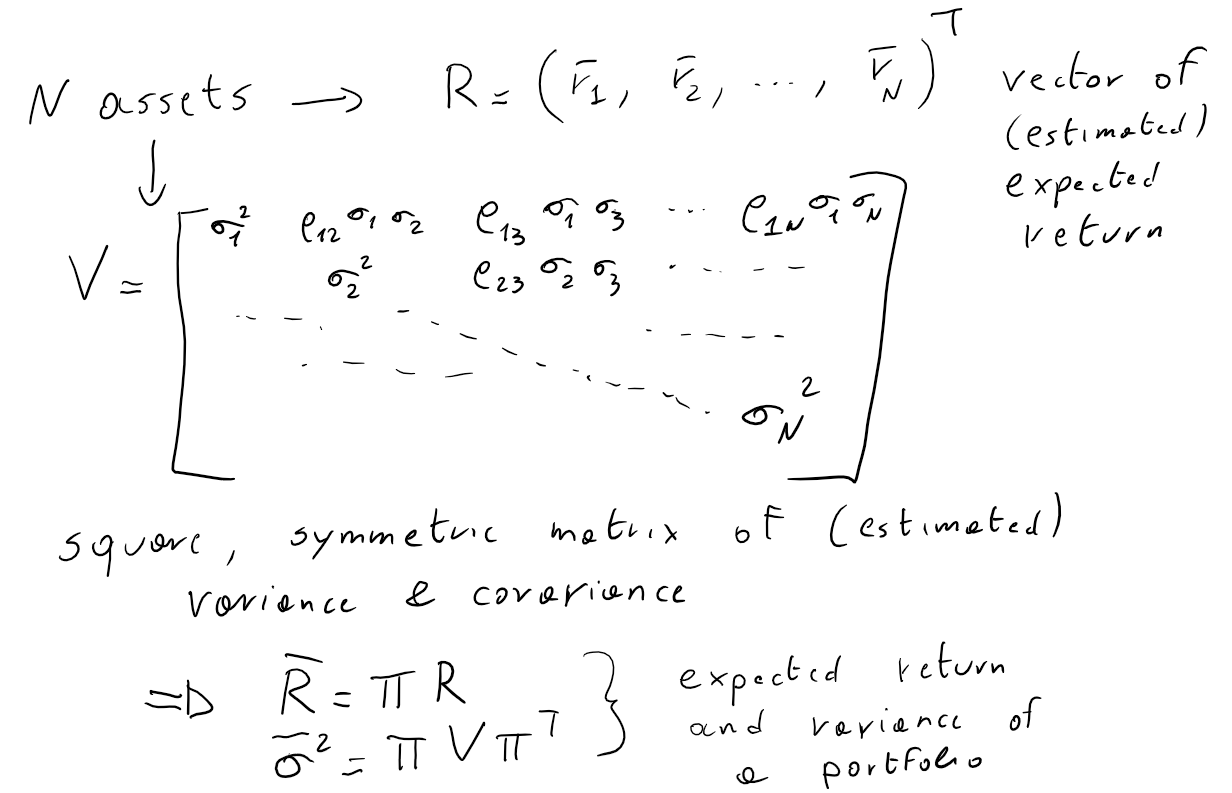 N assets → R = (r̄₁, r̄₂, ..., r̄_N)ᵀ vector of
(estimated)
expected
return
↓
V = [ σ₁² ρ₁₂σ₁σ₂ ρ₁₃σ₁σ₃ ... ρ₁Nσ₁σN
σ₂² ρ₂₃σ₂σ₃ ...
σN² ]
square, symmetric matrix of (estimated)
variance & covariance
⇒ R̄ = π R } expected return
σ̄² = π V πᵀ and variance of
a portfolio